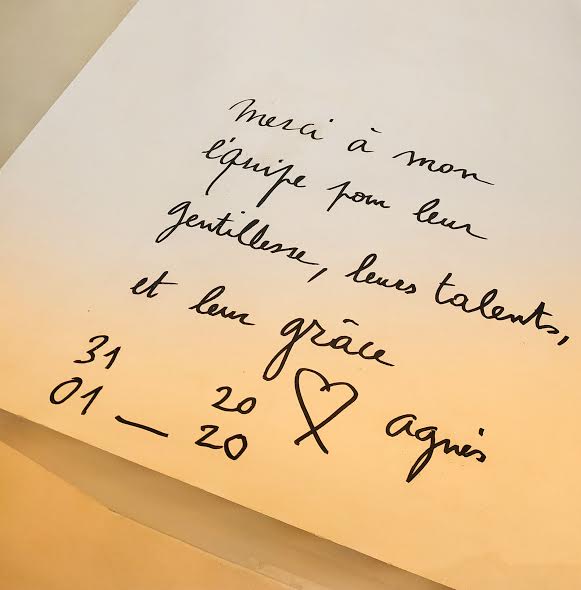 merci à mon
équipe pour leur
gentillesse, leurs talents,
et leur grâce
31
01 — 20
20
agnès